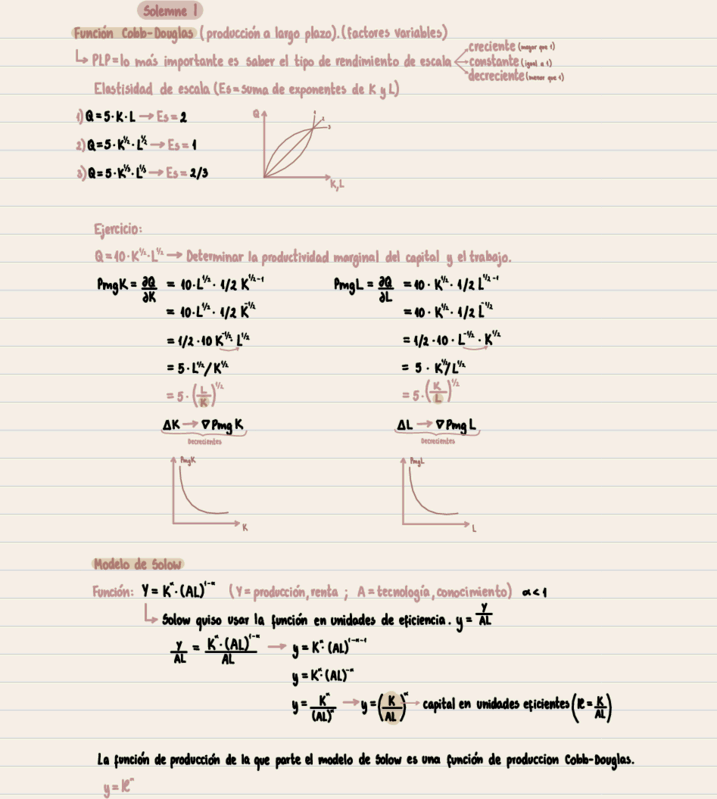 Solemne 1
Función Cobb-Douglas (producción a largo plazo). (factores variables)
↳ PLP = lo más importante es saber el tipo de rendimiento de escala
creciente (mayor que 1)
constante (igual a 1)
decreciente (menor que 1)
Elastisidad de escala (Es = suma de exponentes de K y L)
1) Q = 5·K·L → Es = 2
2) Q = 5·K^½·L^½ → Es = 1
3) Q = 5·K^⅓·L^⅓ → Es = 2/3
Q
1
2
3
K,L
Ejercicio:
Q = 10·K^½·L^½ → Determinar la productividad marginal del capital y el trabajo.
PmgK = ∂Q/∂K = 10·L^½·1/2 K^½-1
= 10·L^½·1/2 K^-½
= 1/2·10 K^-½ L^½
= 5·L^½/K^½
= 5·(L/K)^½
ΔK → ∇PmgK
Decrecientes
PmgK
K
PmgL = ∂Q/∂L = 10·K^½·1/2 L^½-1
= 10·K^½·1/2 L^-½
= 1/2·10·L^-½·K^½
= 5·K^½/L^½
= 5·(K/L)^½
ΔL → ∇PmgL
Decrecientes
PmgL
L
Modelo de Solow
Función: Y = K^α·(AL)^1-α (Y = producción, renta ; A = tecnología, conocimiento) α < 1
↳ Solow quiso usar la función en unidades de eficiencia. y = Y/AL
Y/AL = K^α·(AL)^1-α/AL → y = K^α·(AL)^1-α-1
y = K^α·(AL)^-α
y = K^α/(AL)^α → y = (K/AL)^α → capital en unidades eficientes (k = K/AL)
La función de producción de la que parte el modelo de Solow es una función de produccion Cobb-Douglas.
y = k^α